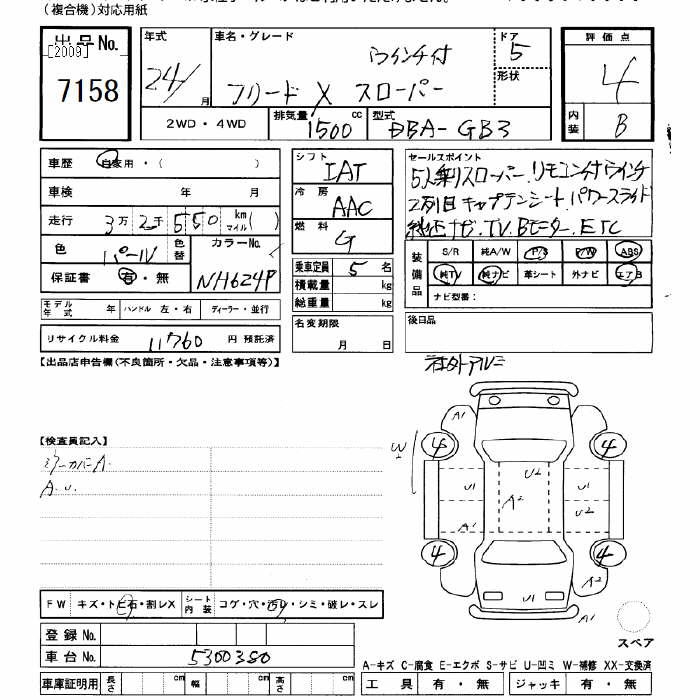 (複合機)対応用紙
出品No.
[2009]
7158
年式
24/
月
車名・グレード
ウインチ付
フリード X スローパー
ドア
5
形状
2WD・4WD
排気量
1500
cc
型式
DBA-GB3
評価点
4
内装
B
車歴 自家用・( )
車検 年 月
走行 3万2千550 km マイル( )
色 パール 色替 カラーNo. NH624P
保証書 有・無
モデル年式 年 ハンドル 左・右 ディーラー・並行
リサイクル料金 11760 円 預託済
シフト
IAT
冷房
AAC
燃料
G
乗車定員 5 名
積載量 kg
総重量 kg
名変期限
月 日
セールスポイント
5人乗りスローパー.リモコン付ウインチ
2列目キャプテンシート.パワースライド
純正ナビ.TV.Bモニター.ETC
装備品
S/R 純A/W P/S P/W ABS
純TV 純ナビ 革シート 外ナビ エアB
ナビ型番:
後日品
社外アルミ
【出品店申告欄(不良箇所・欠品・注意事項等)】
【検査員記入】
ミラーカバーA.
A.U.
A1
4
4
W1
U2
U1
A2
U1
U2
A1
4
4
A2
U1
A1
スペア
FW キズ・トビ石・割レX
シート内装 コゲ・穴・汚レ・シミ・破レ・スレ
登録No.
車台No. 5300350
車庫証明用 長さ cm 幅 cm 高さ cm
A-キズ C-腐食 E-エクボ S-サビ U-凹ミ W-補修 XX-交換済
工具 有・無 ジャッキ 有・無